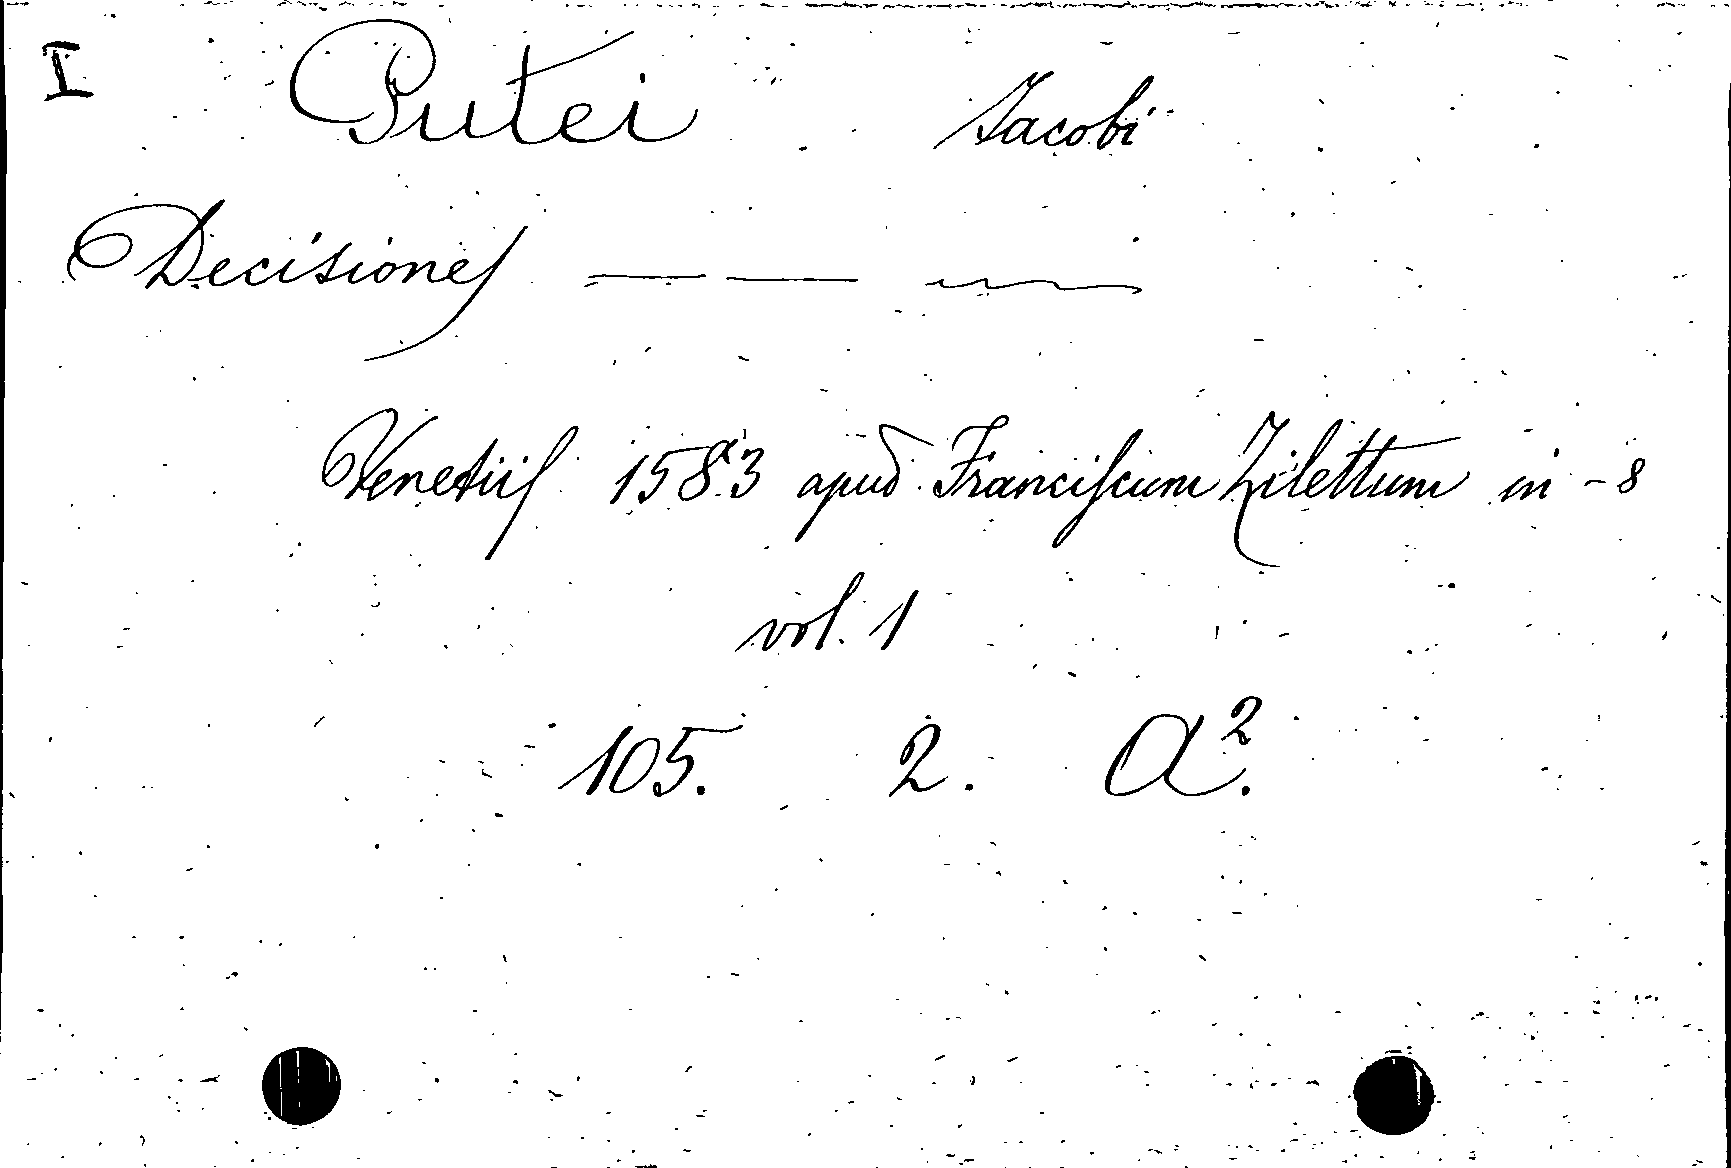 I Putei Jacobi
Decisiones — — —
Venetiis 1583 apud Franciscum Zilettum in-8
vol. 1
105. 2. A².